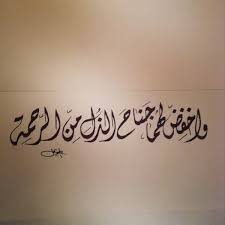 واخفِضْ لهُما جَنَاحَ الذُّلِّ مِنَ الرَّحمةِ